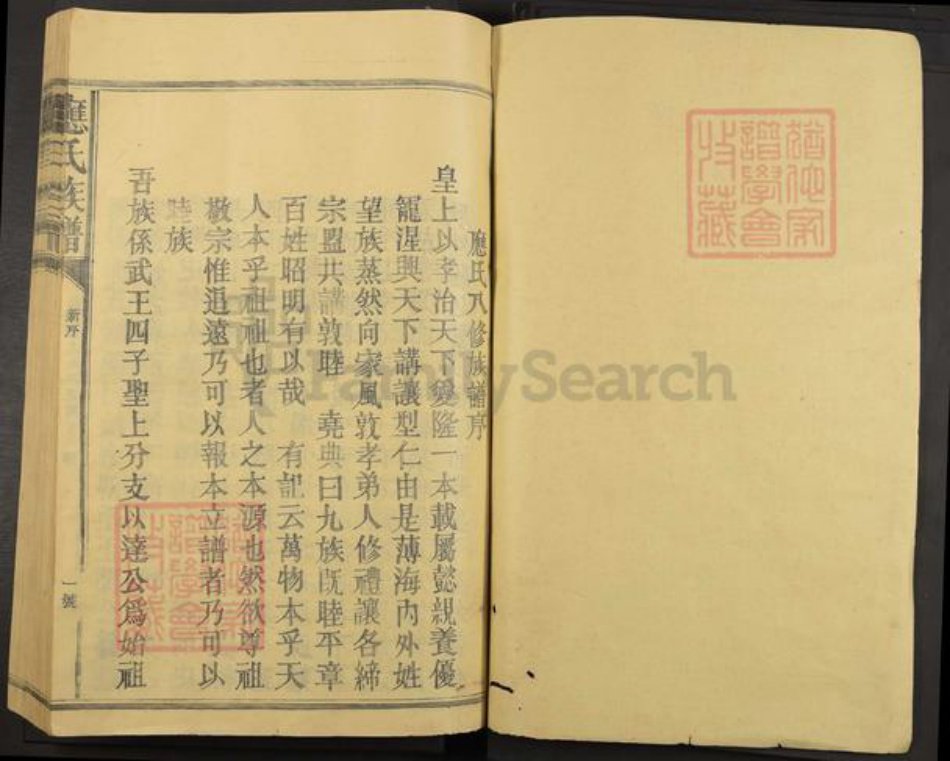 應氏八修族譜序
皇上以孝治天下愛隆一本載屬懿親養優
寵渥興天下講讓型仁由是薄海內外姓
望族蒸然向家風敦孝弟人修禮讓各締
宗盟共講敦睦 堯典曰九族既睦平章
百姓昭明有以哉 有記云萬物本乎天
人本乎祖祖也者人之本源也然欲尊祖
敬宗惟追遠乃可以報本立譜者乃可以
睦族
吾族係武王四子聖上分支以達公爲始祖
應氏族譜
新序
一號
譜學會
收藏
FamilySearch